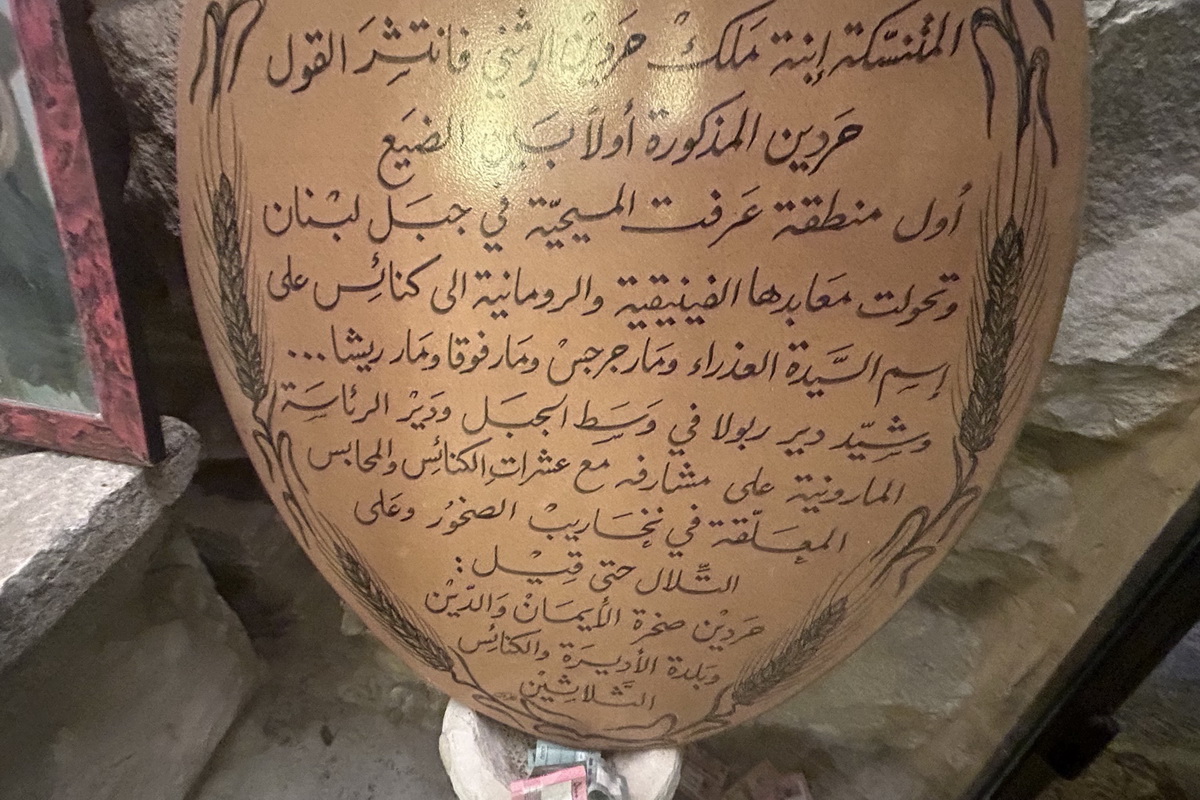 المتنسّكة إبنة مَلكْ حَردين الوثني فانتشِرَ القول
حَردين المذكورة أولاً بَين الضيَع
أول منطقة عَرفت المسيحيّة في جبَل لبْنان
وتحولت معَابدها الفينيقية والرومانية الى كنائِس على
إسِم السَّيدة العذراء ومَار جرجسْ ومَار فوقا ومَار ريشا...
وشيِّد دير ربولا في وَسَط الجبَل ودَيْر الرئاسَة
المارونية على مشارفه مع عشرات الكنائِس والمحابس
المعَلّقة في نخَاريبْ الصخوُر وعَلى
التِّلال حتى قِيْل :
حَردِيْن صَخرة الأيمَانْ وَالدّيْن
وَبَلدة الأديرَة والكنائِس
الثَّلاثِيْن